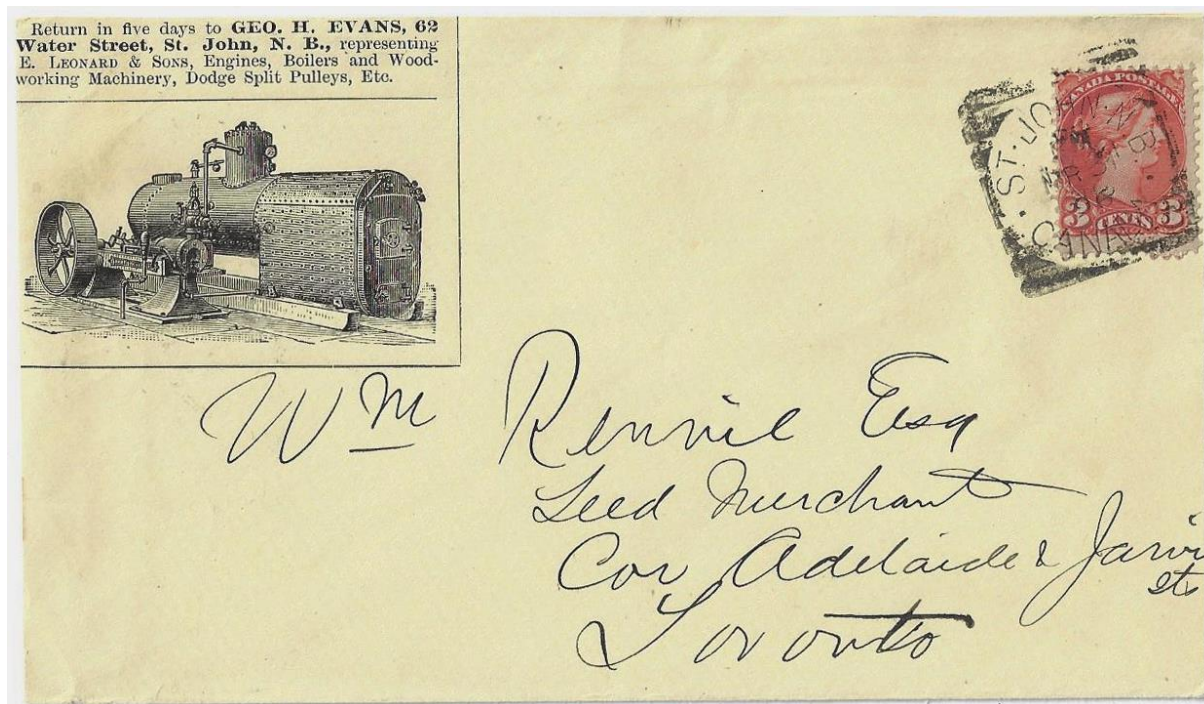 Return in five days to GEO. H. EVANS, 62
Water Street, St. John, N. B., representing
E. LEONARD & SONS, Engines, Boilers and Wood-
working Machinery, Dodge Split Pulleys, Etc.
CANADA POSTAGE
ST. JOHN. N.B.
3 CENTS 3
Wm Rennie Esq
Seed Merchant
Cor Adelaide & Jarvi
sts
Toronto